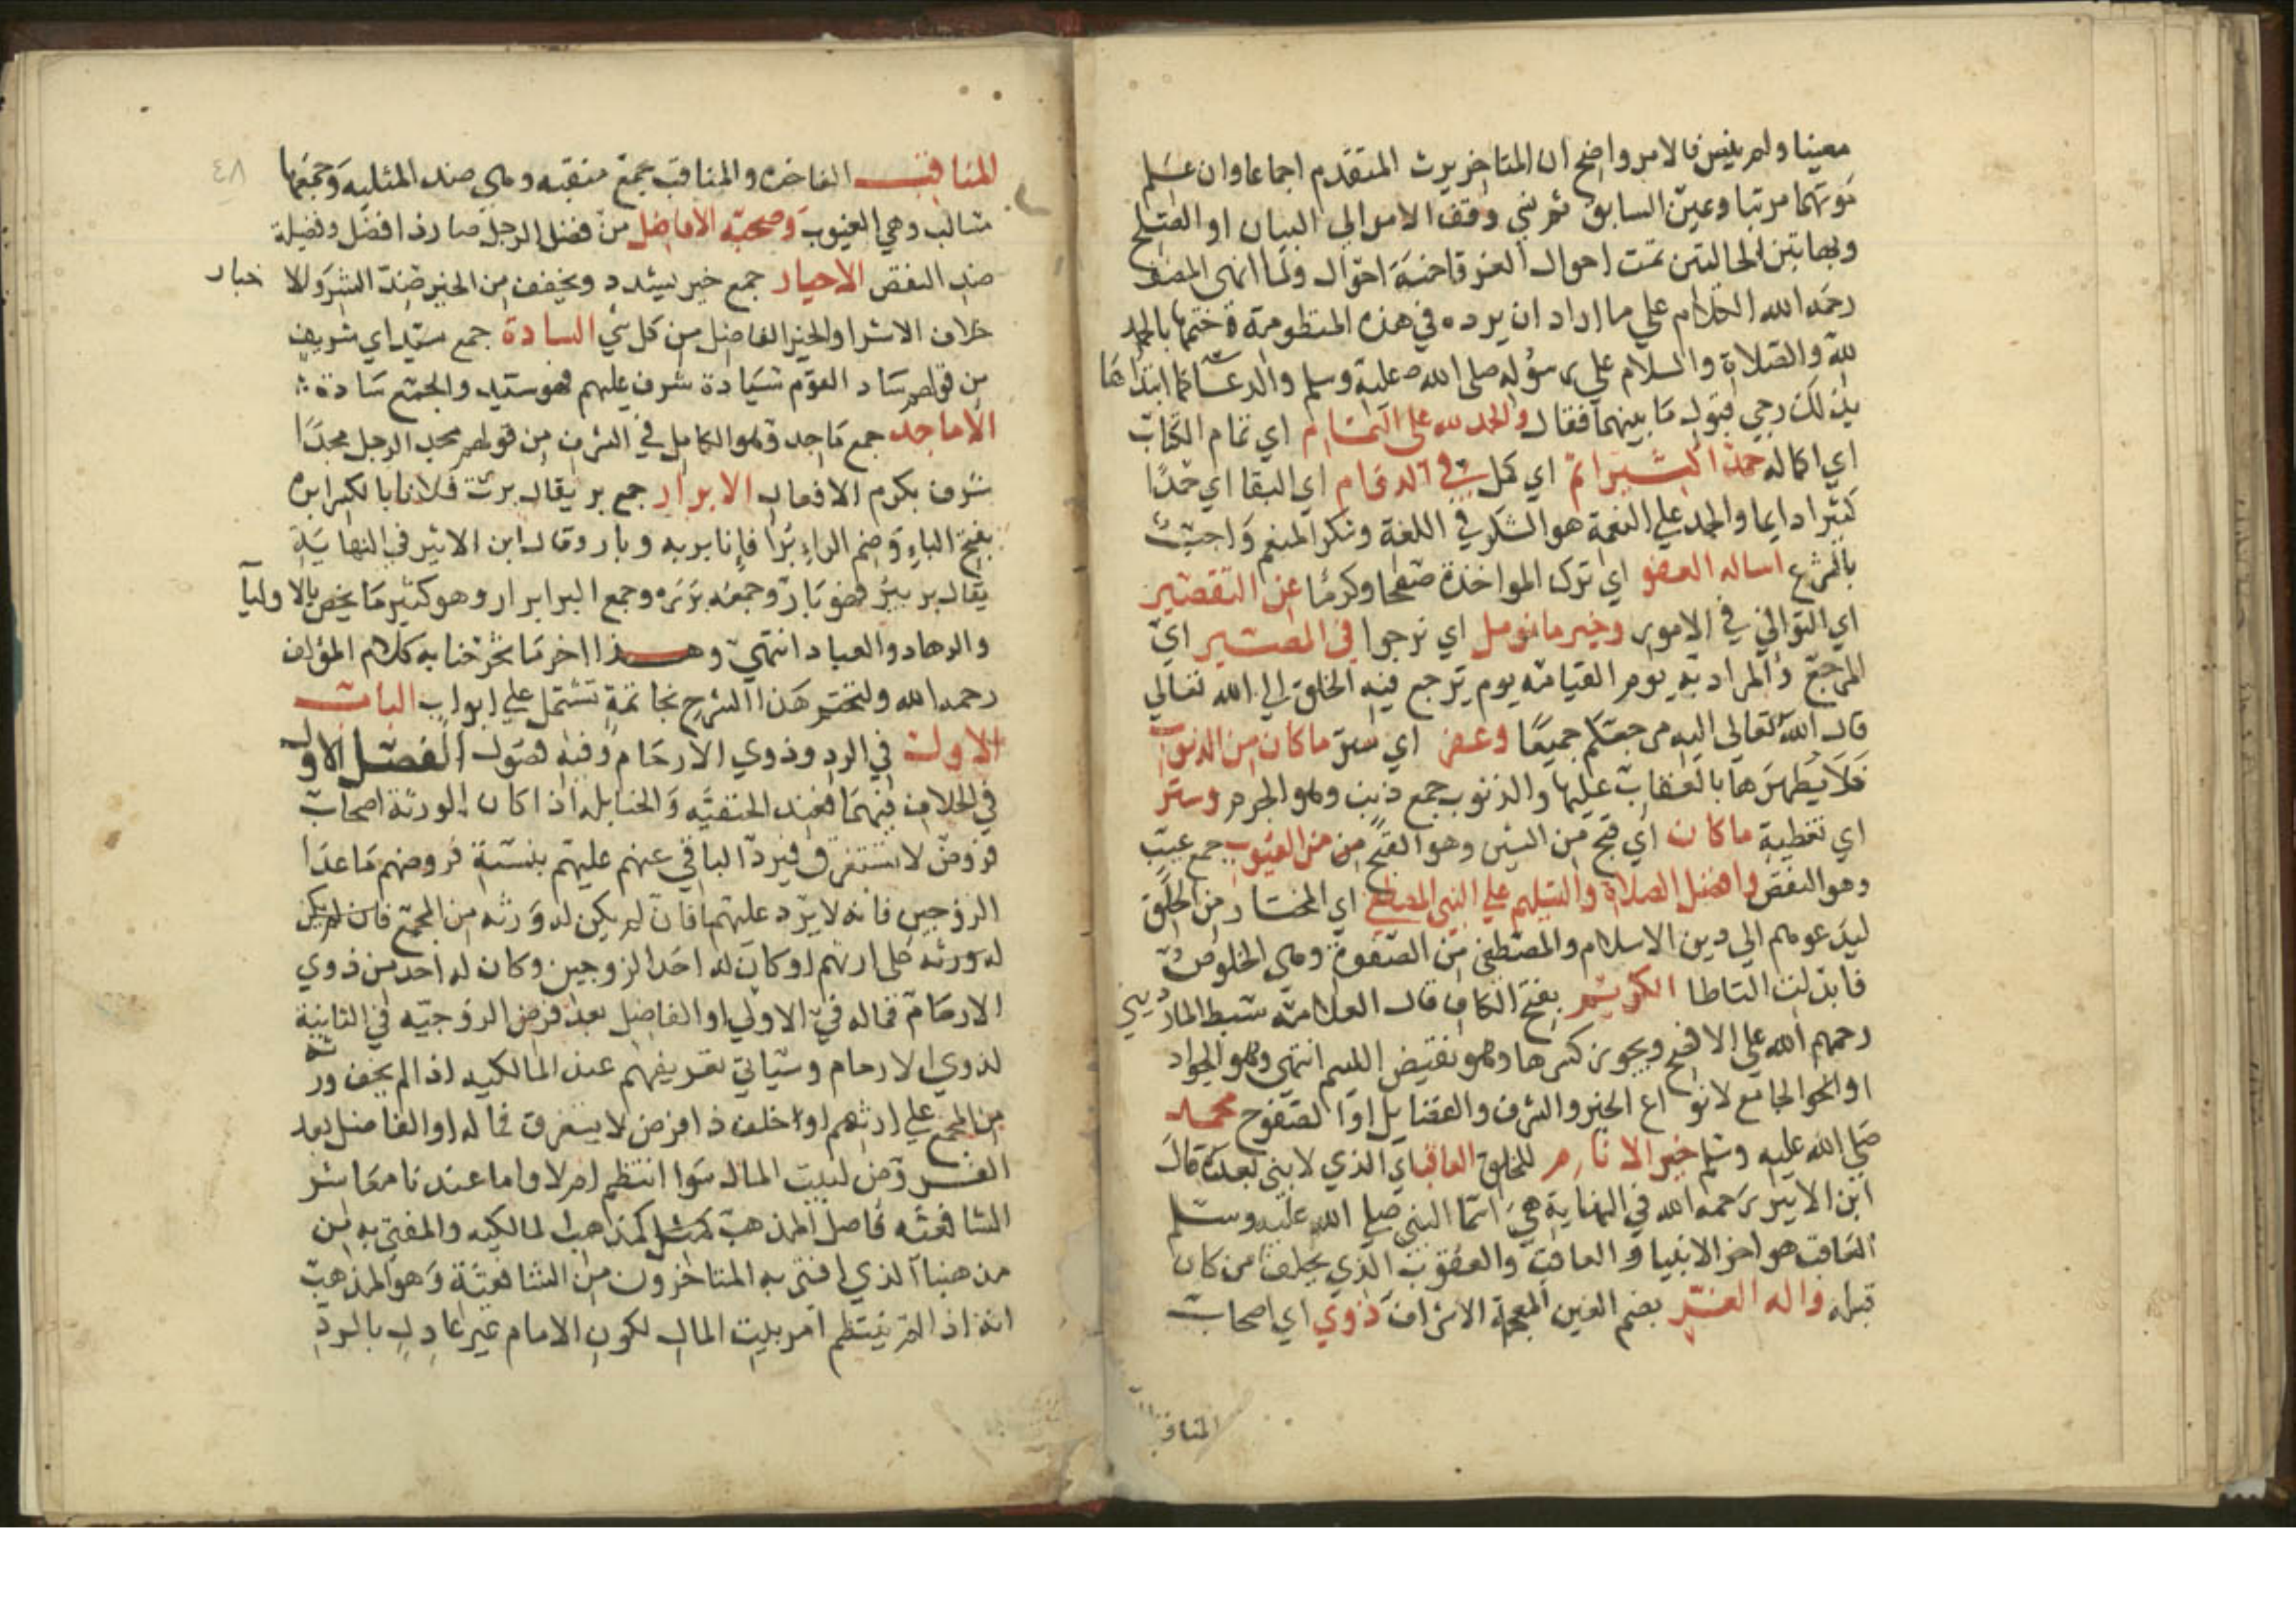 معينا ولم ينس فالامر واضح ان المتاخر يرث المتقدم اجماعا وان علم
موتهما مرتبا وعين السابق ثم نسي وقف الامر الي البيان او الصلح
وبهاتين الحالتين تمت احوال الغرقا خمسة احوال ولما انهى المصنف
رحمه الله الكلام علي ما اراد ان يرده في هذه المنظومة ختمها بالحمد
لله والصلاة والسلام علي رسوله صلى الله عليه وسلم والدعا كما ابتداها
بذلك رجي قبول ما بينهما فقال والحمد لله على التمام اي تمام الكتاب
اي اكماله حمدا كثيرا تم اي كمل في الدوام اي البقا اي حمدا
كثيرا دايما والحمد علي النعمة هو الشكر في اللغة وشكر المنعم واجب
بالشرع اساله العفو اي ترك المواخذة صفحا وكرما عن التقصير
اي التواني في الامور وخير ما نومل اي نرجوا في المصير اي
المرجع والمراد به يوم القيامة يوم يرجع فيه الخلق الي الله تعالي
قال الله تعالي اليه مرجعكم جميعا وغفر اي ستر ما كان من الذنوب
فلا يظهرها بالعقاب عليها والذنوب جمع ذنب وهو الجرم وستر
اي تغطية ما كان اي قبح من الشين وهو القبح من العيوب جمع عيب
وهو النقص وافضل الصلاة والتسليم علي النبي المصطفي اي المختار من الخلق
ليدعوهم الي دين الاسلام والمصطفى من الصفوة وهي الخلوص
فابدلت التا طا الكريم بفتح الكاف قال العلامة سبط المارديني
رحمهم الله علي الافصح ويجوز كسرها وهو نقيض اللئيم انتهى وهو الجواد
او الجامع لانواع الخير والشرف والفضايل او الصفوح محمد
صلي الله عليه وسلم خير الانام للخلق العاقب اي الذي لا نبي بعده قال
ابن الاثير رحمه الله في النهاية هي اسما النبي صلي الله عليه وسلم
العاقب هو اخر الانبيا والعاقب والعقوب الذي يخلف من كان
قبله واله الغر بضم الغين المعجمة الاشراف ذوي اي اصحاب
المناقب
٤٨
المناقب الفاخرة والمناقب جمع منقبة وهي ضد المثلبة وجمعها
مثالب وهي العيوب وصحبه الافاضل من فضل الرجل صار ذا فضل وفضيلة
ضد النقص الاخيار جمع خير يشدد ويخفف من الخير ضد الشر والا خيار
خلاف الاشرار والخير الفاضل من كل شي السادة جمع سيد اي شريف
من قولهم ساد القوم سيادة شرف عليهم فهو سيد والجمع سادة
الاماجد جمع ماجد وهو الكامل في الشرف من قولهم مجد الرجل مجدا
شرف بكرم الافعال الابرار جمع بر يقال بررت فلانا بالكسر ابره
بفتح الباء وضم الراء برا فانا بر به وبار وقال ابن الاثير في النهاية
يقال بر يبر فهو بار وجمعه بررة وجمع البر ابرار وهو كثير ما يخص بالاوليا
والزهاد والعباد انتهي وهذا اخر ما شرحنا به كلام المؤلف
رحمه الله ولنختم هذا الشرح بخاتمة تشتمل علي ابواب الباب
الاول في الرد وذوي الارحام وفيه فصول الفصل الاول
في الخلاف فيهما فعند الحنفيه والحنابلة اذا كان الورثة اصحاب
فروض لا تستغرق فيرد الباقي عنهم عليهم بنسبة فروضهم ماعدا
الزوجين فانه لا يرد عليهما فان لم يكن له ورثه من المجمع فان لم يكن
له ورثه على ارثهم او كان له احد الزوجين وكان له احد من ذوي
الارحام فماله في الاولي او الفاضل بعد فرض الزوجيه في الثانية
لذوي الارحام وسياتي تعريفهم عند المالكيه اذا لم يخلف ورثه
من المجمع علي ارثهم او خلف ذا فرض لا يستغرق فماله او الفاضل بعد
الفروض لبيت المال سوا انتظم ام لا واما عندنا معاشر
الشافعيه فاصل المذهب كمذهب المالكيه والمفتى به من
مذهبنا الذي افتى به المتاخرون من الشافعية وهو المذهب
انه اذا لم ينتظم امر بيت المال لكون الامام غير عادل بالرد